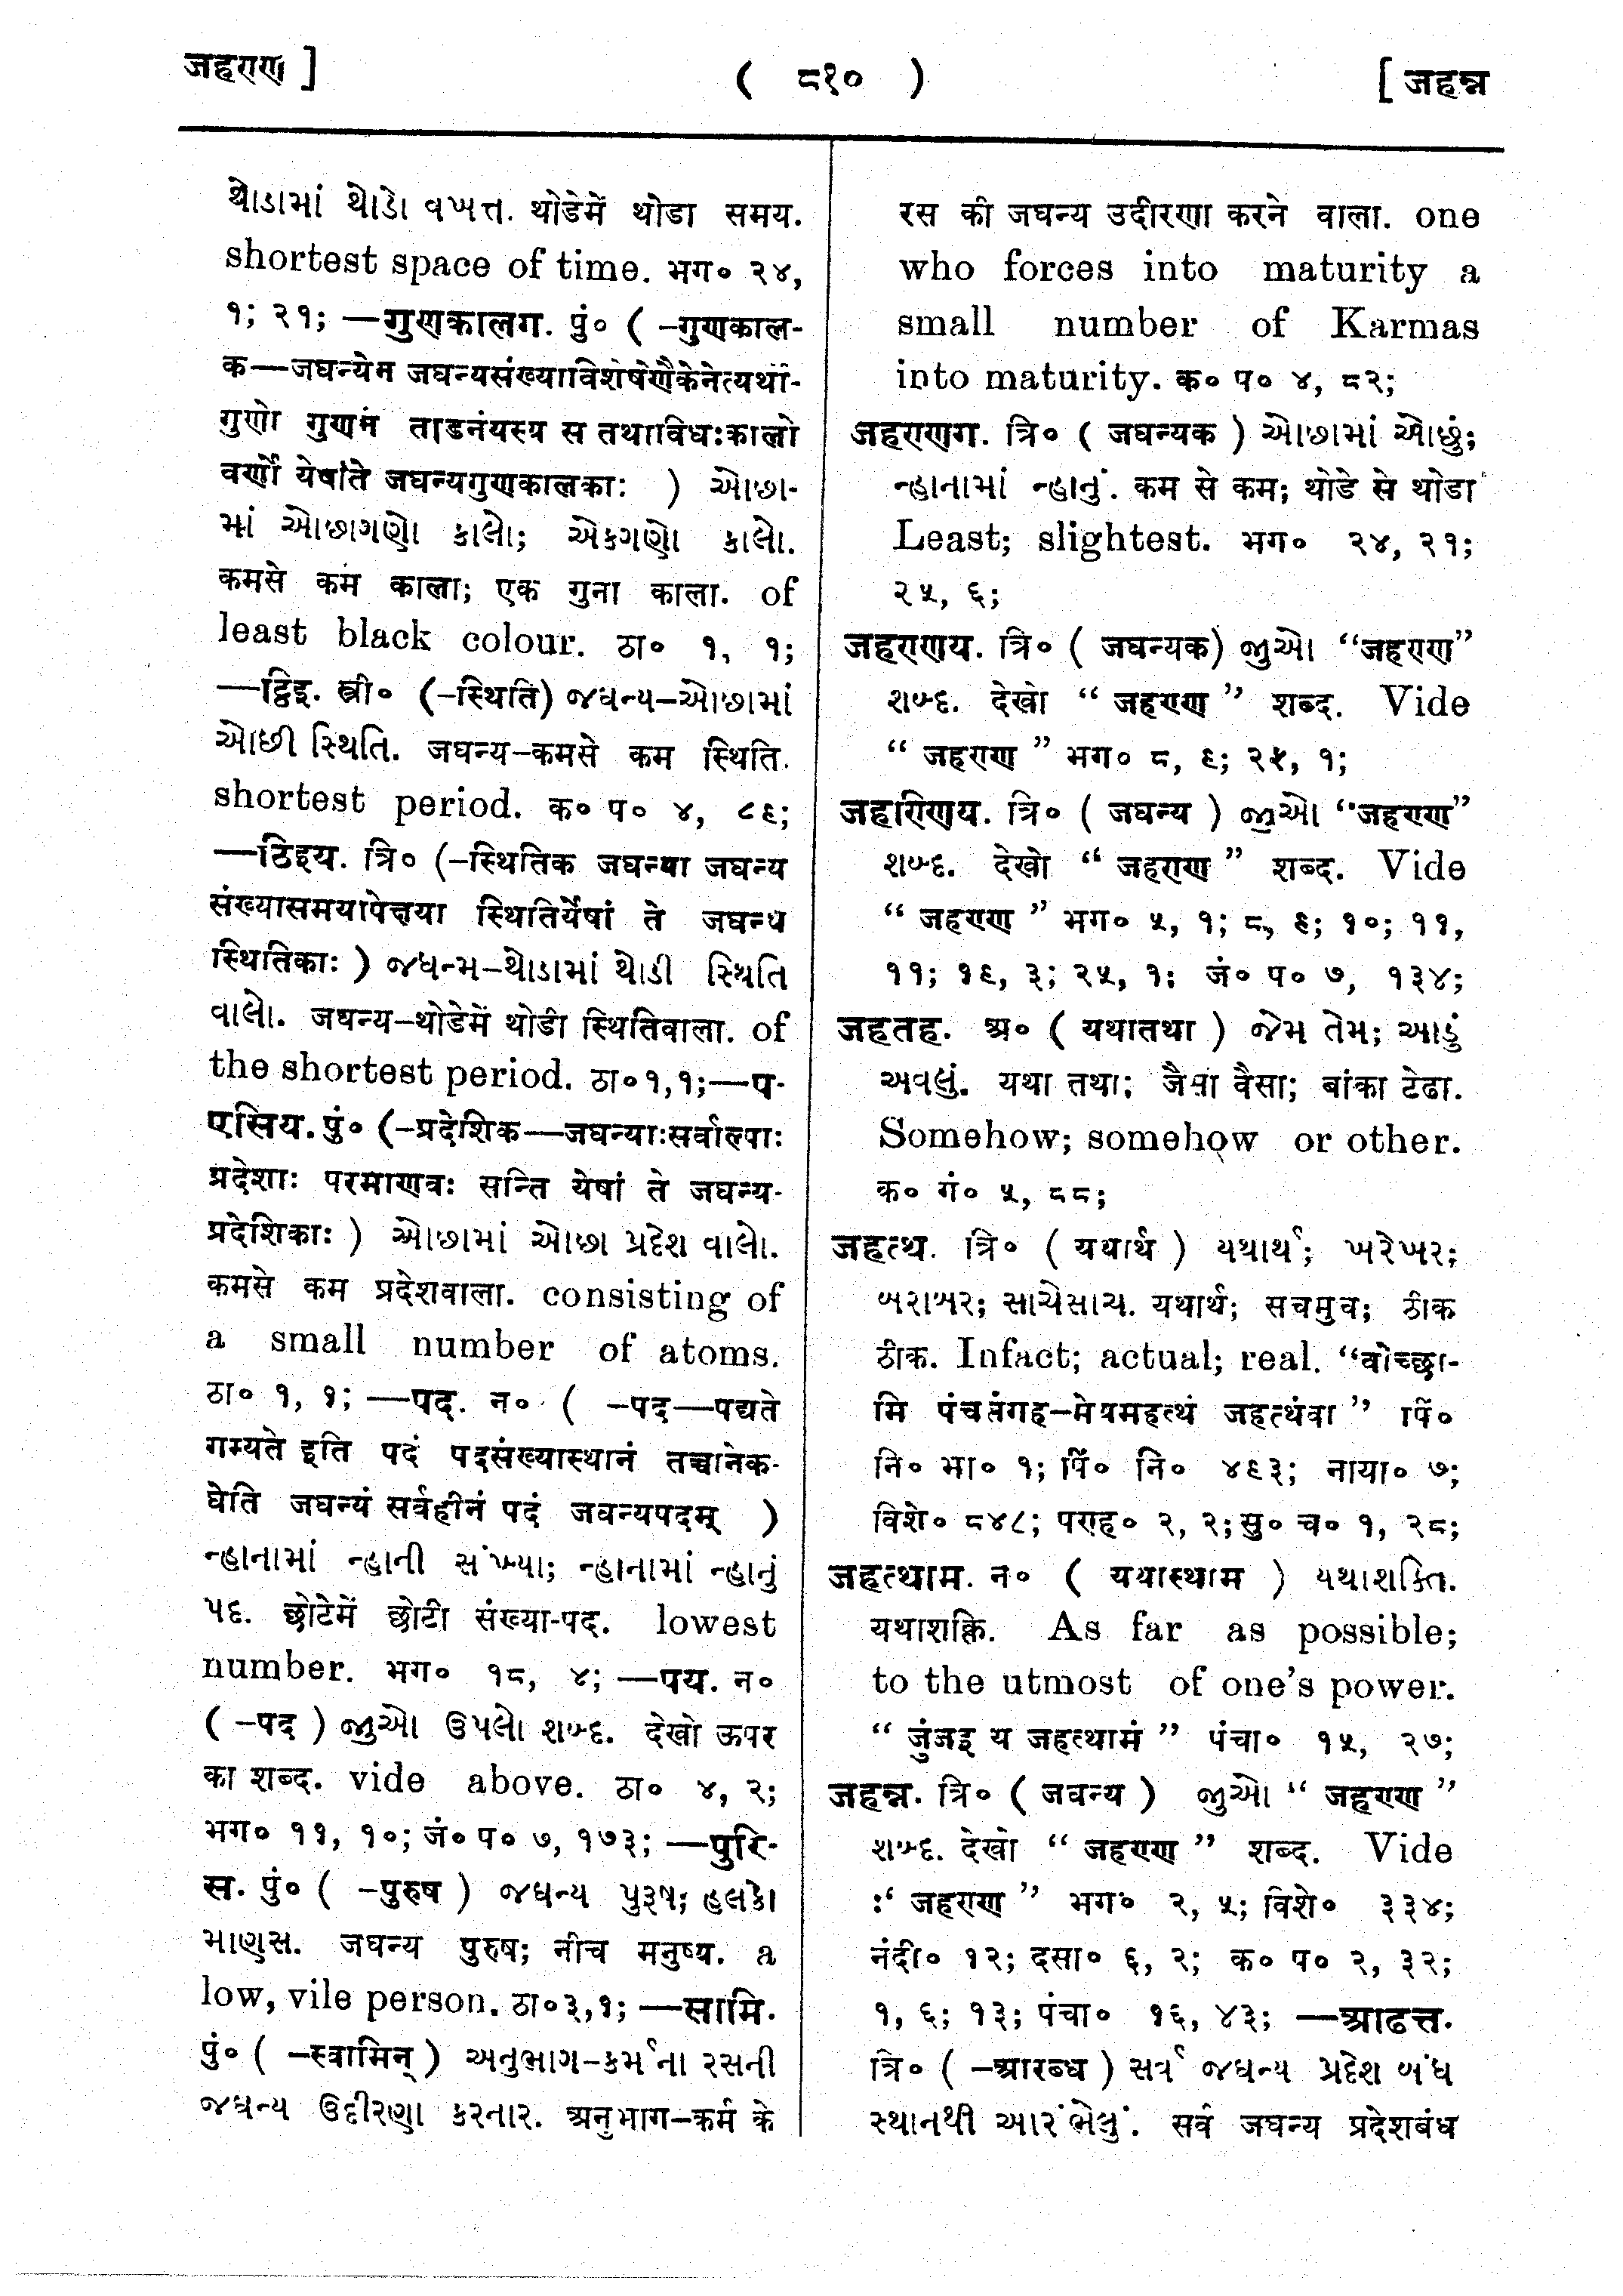 जहरण ]
( ८१० )
[ जहन्न
થોડામાં થોડો વખત. थोडेमें थोडा समय.
shortest space of time. भग० २४,
१; २१; —गुणकालग. पुं० ( –गुणकाल-
क—जघन्येन जघन्यसंख्याविशेषेणैकेनेत्यर्थो-
गुणो गुणनं ताडनंयस्य स तथाविधःकालो
वर्णो येषांते जघन्यगुणकालकाः ) ઓછા-
માં ઓછાગણો કાલો; એકગણો કાલો.
कमसे कम काला; एक गुना काला. of
least black colour. ठा० १, १;
—ट्ठिइ. स्त्री० (–स्थिति) જઘન્ય–ઓછામાં
ઓછી સ્થિતિ. जघन्य–कमसे कम स्थिति.
shortest period. क० प० ४, ८९;
—ठिइय. त्रि० (–स्थितिक जघन्या जघन्य
संख्यासमयापेक्षया स्थितिर्येषां ते जघन्य
स्थितिकाः ) જઘન્મ–થોડામાં થોડી સ્થિતિ
વાલો. जघन्य–थोडेमें थोडी स्थितिवाला. of
the shortest period. ठा०१,१;—प-
एसिय. पुं० (–प्रदेशिक—जघन्याःसर्वाल्पाः
प्रदेशाः परमाणवः सन्ति येषां ते जघन्य-
प्रदेशिकाः ) ઓછામાં ઓછા પ્રદેશ વાલો.
कमसे कम प्रदेशवाला. consisting of
a small number of atoms.
ठा० १, १; —पद. न० ( –पद—पद्यते
गम्यते इति पदं पदसंख्यास्थानं तच्चानेक-
धेति जघन्यं सर्वहीनं पदं जघन्यपदम् )
ન્હાનામાં ન્હાની સંખ્યા; ન્હાનામાં ન્હાનું
પદ. छोटेमें छोटी संख्या-पद. lowest
number. भग० १८, ४; —पय. न०
( –पद ) જુઓ ઉપલો શબ્દ. देखो ऊपर
का शब्द. vide above. ठा० ४, २;
भग० ११, १०; जं० प० ७, १७३; —पुरि-
स. पुं० ( –पुरुष ) જઘન્ય પુરૂષ; હલકો
માણસ. जघन्य पुरुष; नीच मनुष्य. a
low, vile person. ठा०३,१; —सामि.
पुं० ( –स्वामिन् ) અનુભાગ–કર્મના રસની
જઘન્ય ઉદીરણા કરનાર. अनुभाग–कर्म के
रस की जघन्य उदीरणा करने वाला. one
who forces into maturity a
small number of Karmas
into maturity. क० प० ४, ८२;
जहरणग. त्रि० ( जघन्यक ) ઓછામાં ઓછું;
ન્હાનામાં ન્હાનું. कम से कम; थोडे से थोडा
Least; slightest. भग० २४, २१;
२५, ६;
जहरणय. त्रि० ( जघन्यक) જુઓ “जहरण”
શબ્દ. देखो “ जहरण ” शब्द. Vide
“ जहरण ” भग० ८, ९; २५, १;
जहरिणय. त्रि० ( जघन्य ) જુઓ “जहरण”
શબ્દ. देखो “ जहरण ” शब्द. Vide
“ जहरण ” भग० ५, १; ८, ९; १०; ११,
११; १९, ३; २५, १; जं० प० ७, १३४;
जहतह. अ० ( यथातथा ) જેમ તેમ; આડું
અવલું. यथा तथा; जैसा वैसा; बांका टेढा.
Somehow; somehow or other.
क० गं० ५, ८८;
जहत्थ. त्रि० ( यथार्थ ) યથાર્થ; ખરેખર;
બરાબર; સાચેસાચ. यथार्थ; सचमुच; ठीक
ठीक. Infact; actual; real. “वोच्छा-
मि पंचलंगह–मेयमहत्थं जहत्थंवा ” पिं०
नि० भा० १; पिं० नि० ४९३; नाया० ७;
विशे० ८४८; पराह० २, २; सु० च० १, २८;
जहत्थाम. न० ( यथास्थाम ) યથાશક્તિ.
यथाशक्ति. As far as possible;
to the utmost of one’s power.
“ जुंजइ य जहत्थामं ” पंचा० १५, २७;
जहन्न. त्रि० ( जघन्य ) જુઓ “ जहरण ”
શબ્દ. देखो “ जहरण ” शब्द. Vide
“ जहरण ” भग० २, ५; विशे० ३३४;
नंदी० १२; दसा० ६, २; क० प० २, ३२;
१, ६; १३; पंचा० १६, ४३; —आढत्त.
त्रि० ( –आरब्ध ) સર્વ જઘન્ય પ્રદેશ બંધ
સ્થાનથી આરંભેલું. सर्व जघन्य प्रदेशबंध